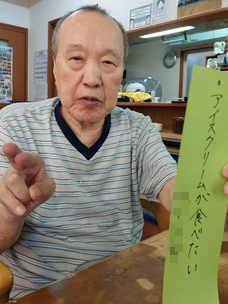 アイスクリームが食べたい